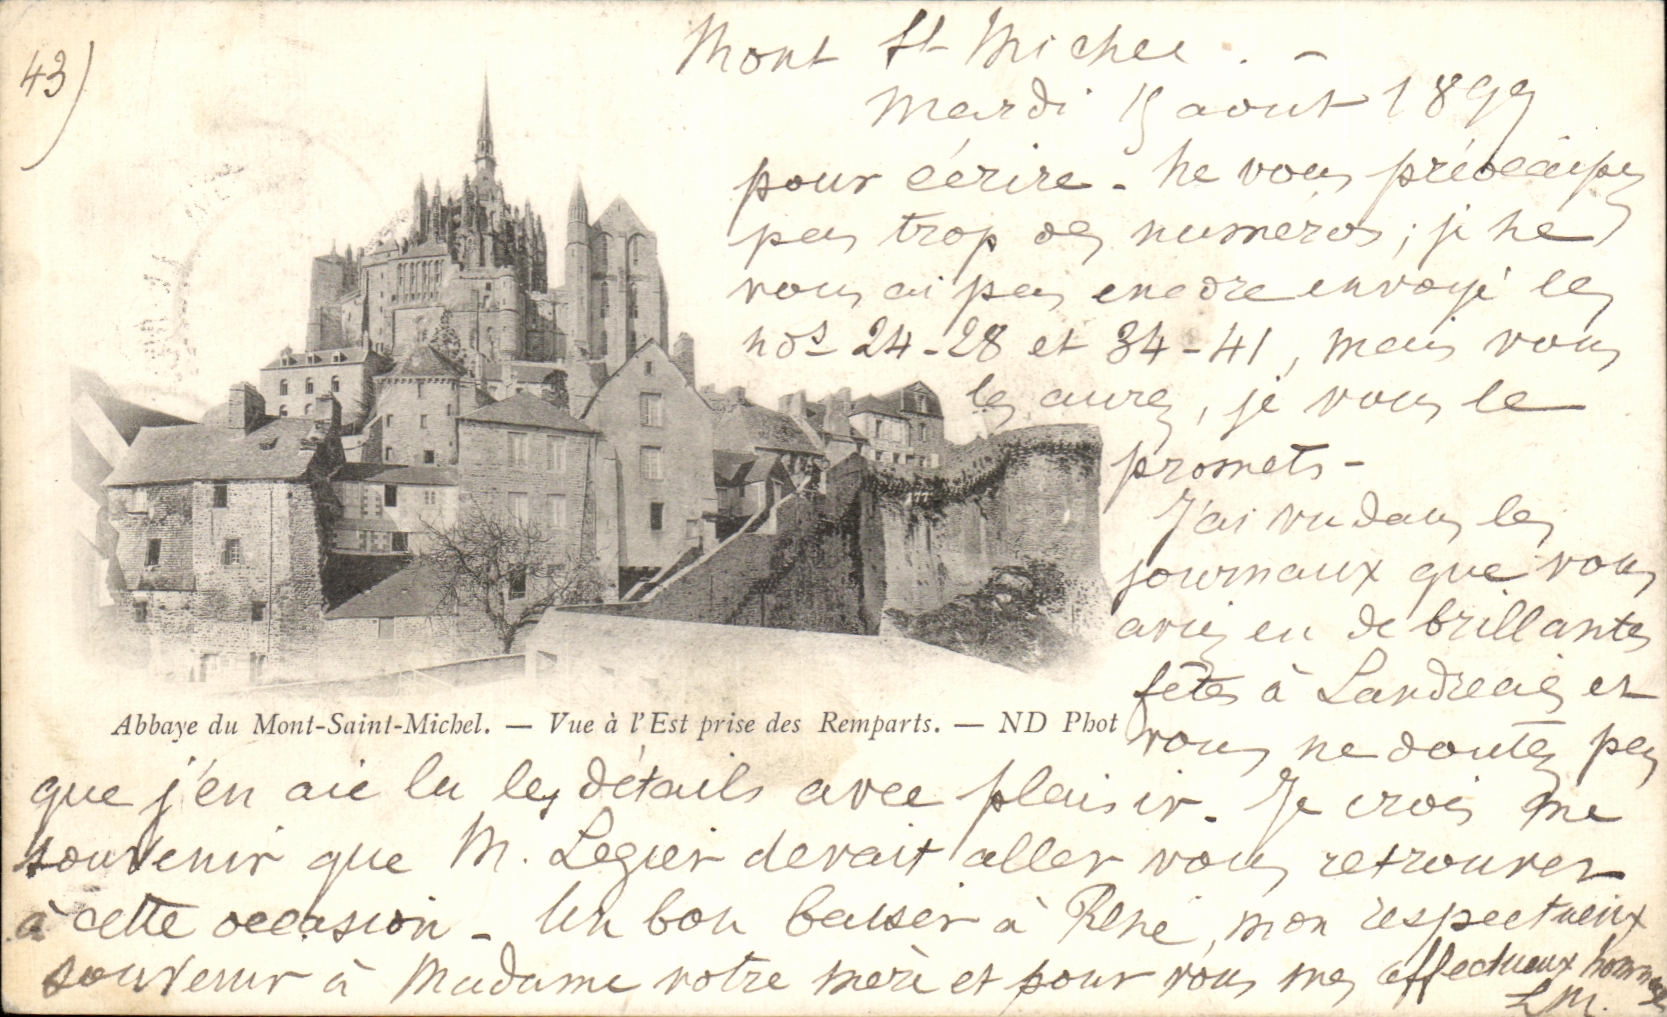 43)
Mont St Michel. -
Mardi 15 août 1899
pour écrire - Ne vous préoccupez
pas trop des numéros ; je ne
vous ai pas encore envoyé les
nos 24-28 et 34-41, mais vous
les aurez, je vous le
promets -
J'ai vu dans les
journaux que vous
aviez eu de brillantes
fêtes à Landrecies et
vous ne doutez pas
Abbaye du Mont-Saint-Michel. — Vue à l'Est prise des Remparts. — ND Phot
que j'en aie lu les détails avec plaisir. Je crois me
souvenir que M. Legier devait aller vous retrouver
à cette occasion - Un bon baiser à René, mon respectueux
souvenir à Madame votre mère et pour vous mes affectueux hommages
LM.